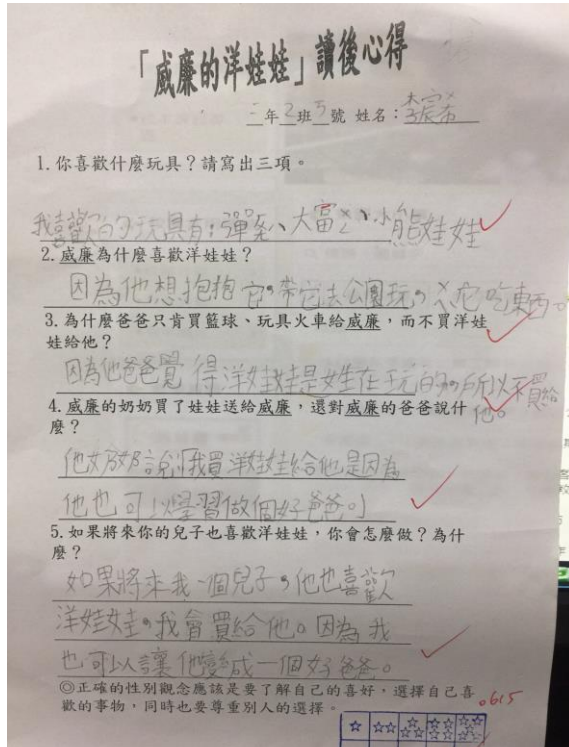 「威廉的洋娃娃」讀後心得
三年2班5號 姓名：李宸希
1.你喜歡什麼玩具？請寫出三項。
我喜歡的玩具有：彈珠、大富ㄨㄥ、小熊娃娃
2.威廉為什麼喜歡洋娃娃？
因為他想抱抱它，帶它去公園玩，ㄨㄟ它吃東西。
3.為什麼爸爸只肯買籃球、玩具火車給威廉，而不買洋娃
娃給他？
因為他爸爸覺得洋娃娃是女生在玩的，所以不買給
他。
4.威廉的奶奶買了娃娃送給威廉，還對威廉的爸爸說什
麼？
他奶奶說：「我買洋娃娃給他是因為
他也可以學習做個好爸爸。」
5.如果將來你的兒子也喜歡洋娃娃，你會怎麼做？為什
麼？
如果將來我一個兒子，他也喜歡
洋娃娃，我會買給他。因為我
也可以讓他變成一個好爸爸。
◎正確的性別觀念應該是要了解自己的喜好，選擇自己喜
歡的事物，同時也要尊重別人的選擇。
0615